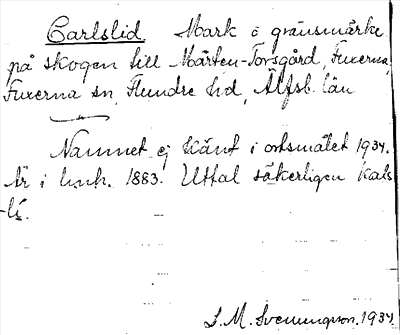 Carlslid Mark o gränsmärke
på skogen till Mårten-Torsgård, Fuxerna,
Fuxerna sn, Flundre hd, Älfsb. län
Namnet ej känt i ortsmålet 1934.
Är i lmh. 1883. Uttal säkerligen Kals
-li.
S. M. Svenungson, 1934.